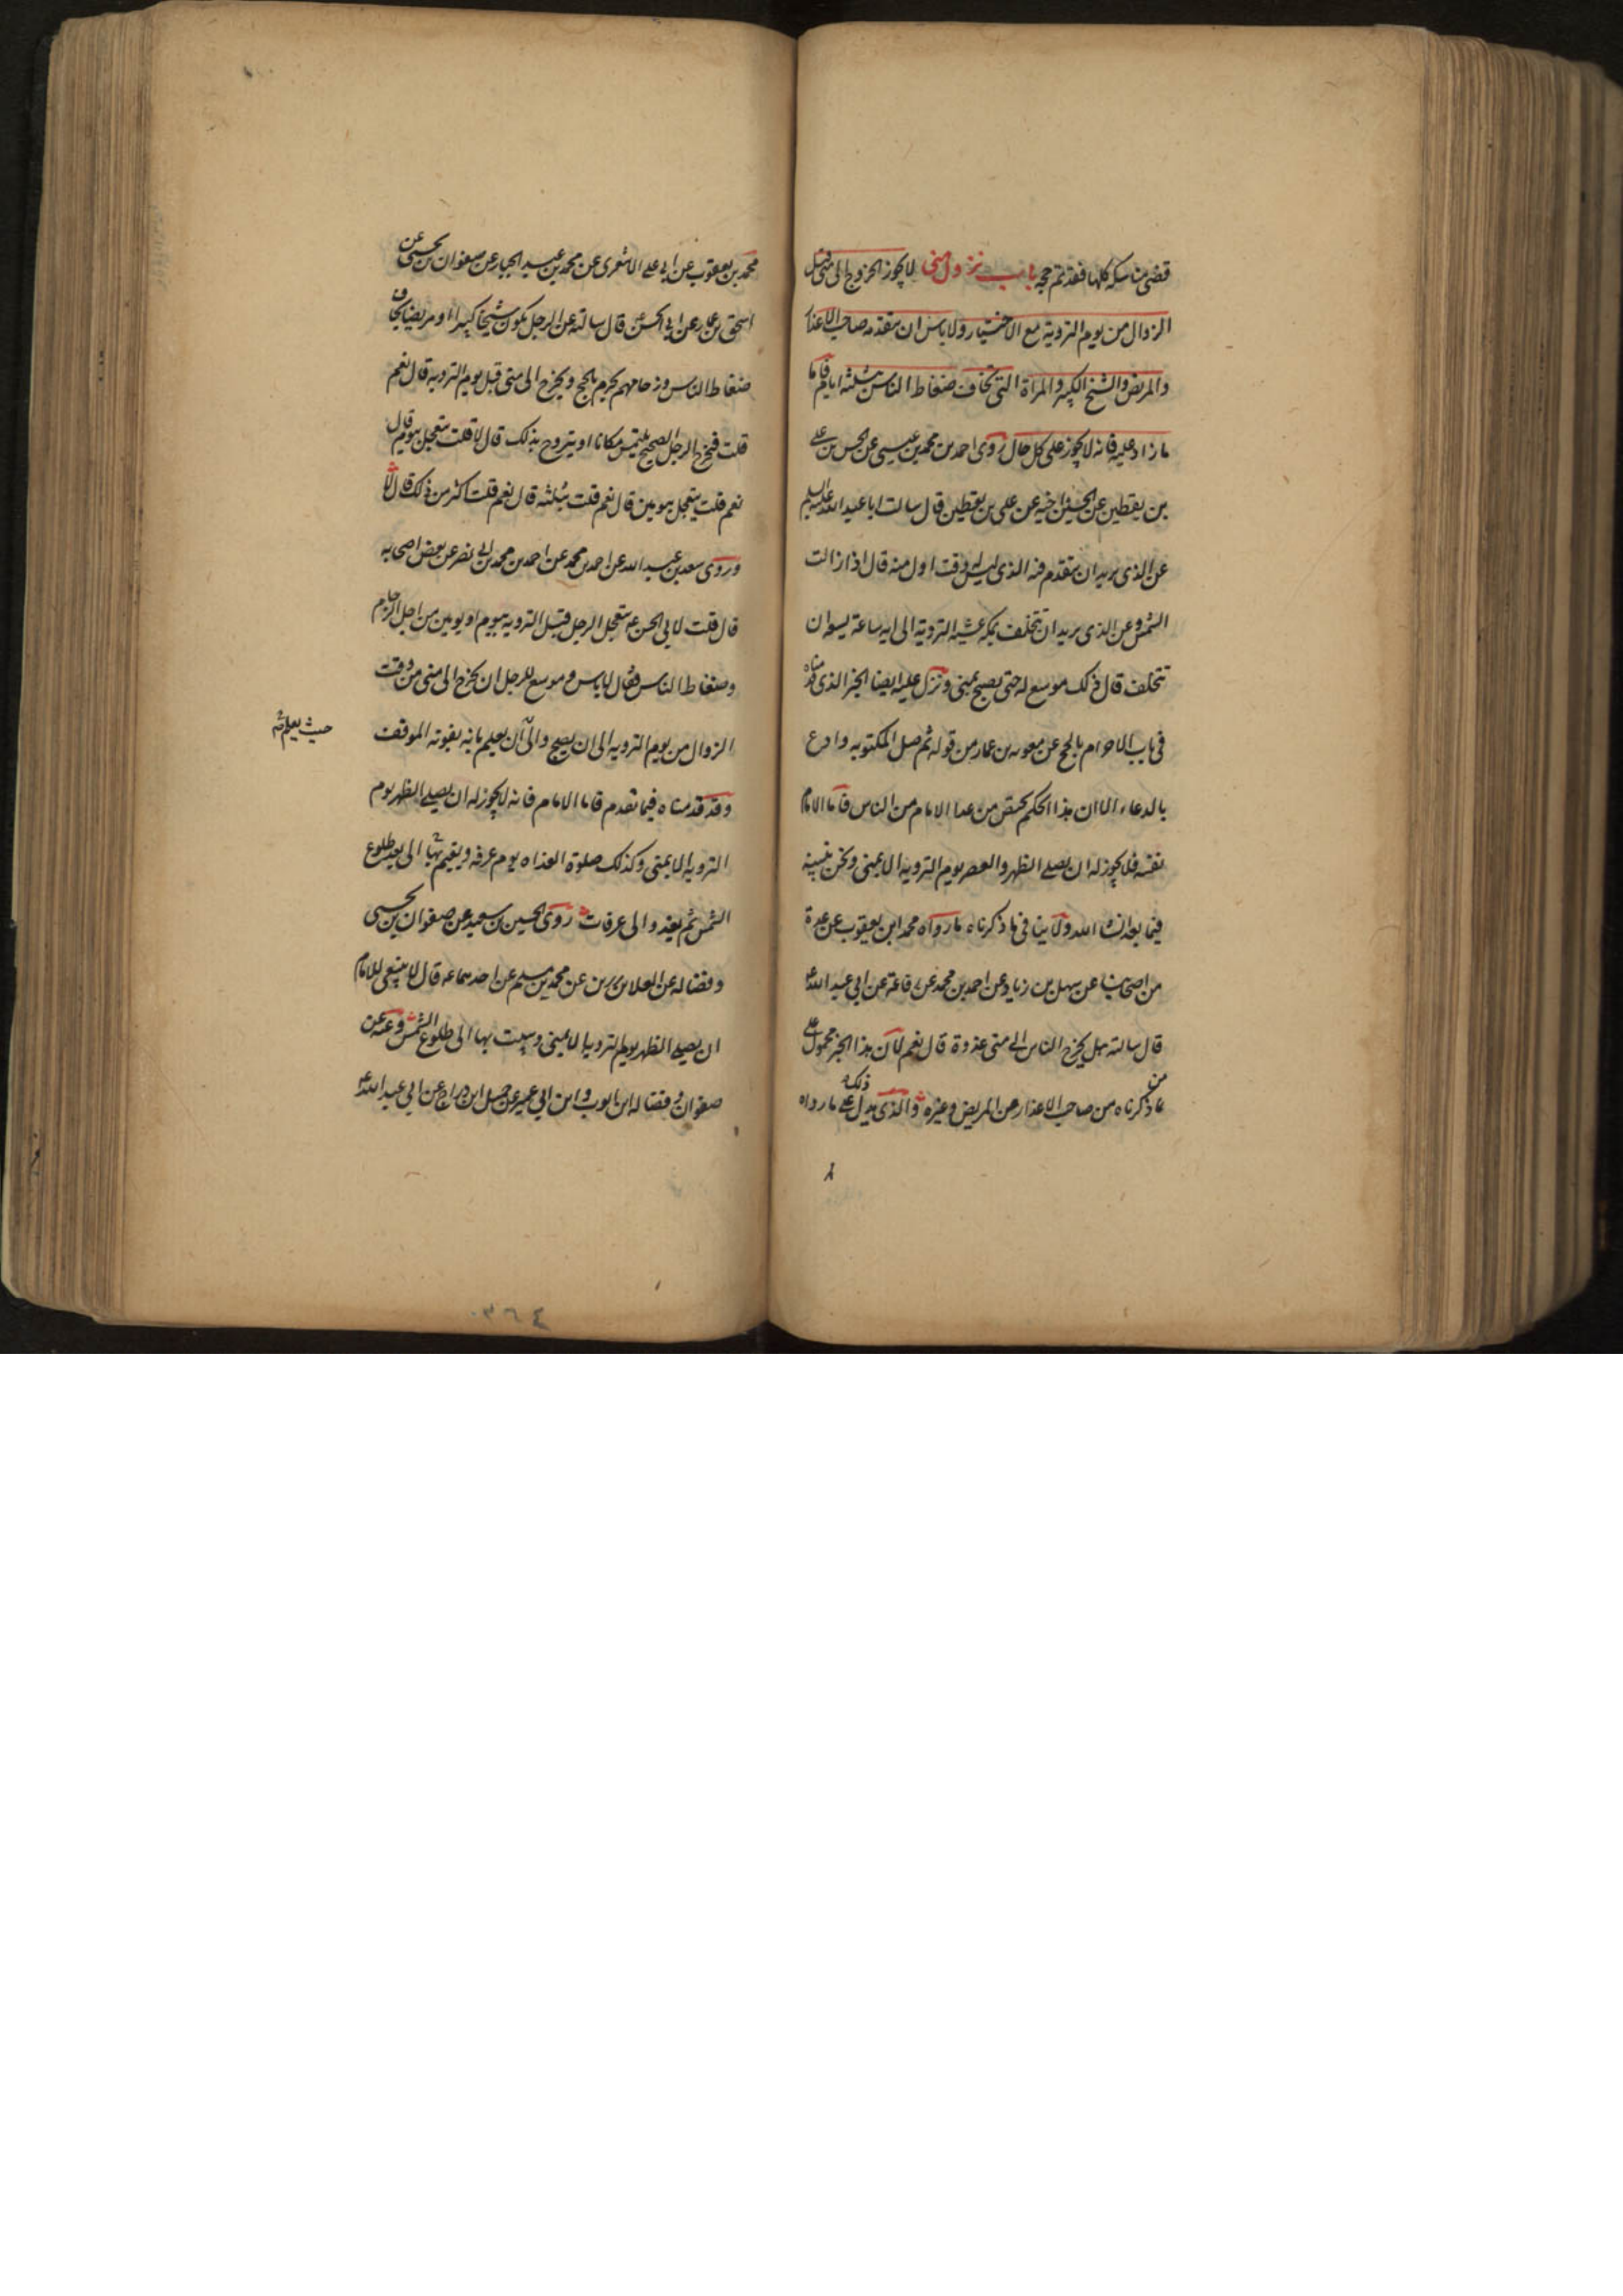 قضى مناسكه كلها فقد تم حجه باب نزول منى لا يجوز الخروج الى منى قبل
الزوال من يوم التروية مع الاختيار ولا باس ان يتقدمه صاحب الاعذار
والمريض والشيخ الكبير والمراة التى تخاف ضغاط الناس بثلثه ايام فاما
ما زاد عليه فانه لا يجوز على كل حال روى احمد بن محمد بن عيسى عن الحسن بن على
بن يقطين عن الحسين اخيه عن على بن يقطين قال سالت ابا عبد الله عليه السلم
عن الذى يريد ان يتقدم فيه الذى ليس له وقت اول منه قال اذا زالت
الشمس وعن الذى يريد ان يتخلف بمكه عشيه التروية الى ايه ساعة يسعه ان
يتخلف قال ذلك موسع له حتى يصبح بمنى ونزل عليه ايضا الخبر الذى قدمناه
فى باب الاحرام بالحج عن معويه بن عمار من قوله ثم صل المكتوبه وادع
بالدعاء الا ان هذا الحكم يختص من عدا الامام من الناس فاما الامام
نفسه فلا يجوز له ان يصلى الظهر والعصر يوم الترويه الا بمنى ونحن نبينه
فيما بعد انشا الله ولا ينافى ما ذكرناه ما رواه محمد ابن يعقوب عن عدة
من اصحابنا عن سهل بن زياد عن احمد بن محمد عن رفاعة عن ابى عبد الله ع
قال سالته هل يخرج الناس الى منى غدوة قال نعم لان هذا الخبر محمول على
من ذكرناه من صاحب الاعذار من المريض وغيره والذى يدل على ذلك ما رواه
محمد بن يعقوب عن ابى على الاشعرى عن محمد بن عبد الجبار عن صفوان بن يحيى عن
اسحق بن عمار عن ابى الحسن ع قال سالته عن الرجل يكون شيخا كبيرا او مريضا يخاف
ضغاط الناس وزحامهم يحرم بالحج ويخرج الى منى قبل يوم الترويه قال نعم
قلت فيخرج الرجل الصحيح يلتمس مكانا او يتروح بذلك قال لا قلت يتعجل بيوم قال
نعم قلت يتعجل بيومين قال نعم قلت بثلثه قال نعم قلت اكثر من ذلك قال لا
وروى سعد بن عبد الله عن احمد بن محمد عن احمد بن محمد بن ابى نصر عن بعض اصحابه
قال قلت لابى الحسن ع يتعجل الرجل قبل الترويه بيوم او يومين من اجل الزحام
وضغاط الناس فقال لا باس وموسع للرجل ان يخرج الى منى من وقت
الزوال من يوم الترويه الى ان يصبح والى ان يعلم بانه يفوته الموقف
حيث يعلم
وقد قدمناه فيما تقدم فاما الامام فانه لا يجوز له ان يصلى الظهر يوم
الترويه الا بمنى وكذلك صلوة الغداه يوم عرفه ويقيم بها الى بعد طلوع
الشمس ثم يغدو الى عرفات روى الحسين بن سعيد عن صفوان بن يحيى
وفضاله عن العلا بن رزين عن محمد بن مسلم عن احدهما ع قال لا ينبغى للامام
ان يصلى الظهر يوم الترويه الا بمنى ويبيت بها الى طلوع الشمس وعنه عن
صفوان وفضاله ابن ايوب وابن ابى عمير عن جميل ابن دراج عن ابى عبد الله ع
٣٦٤